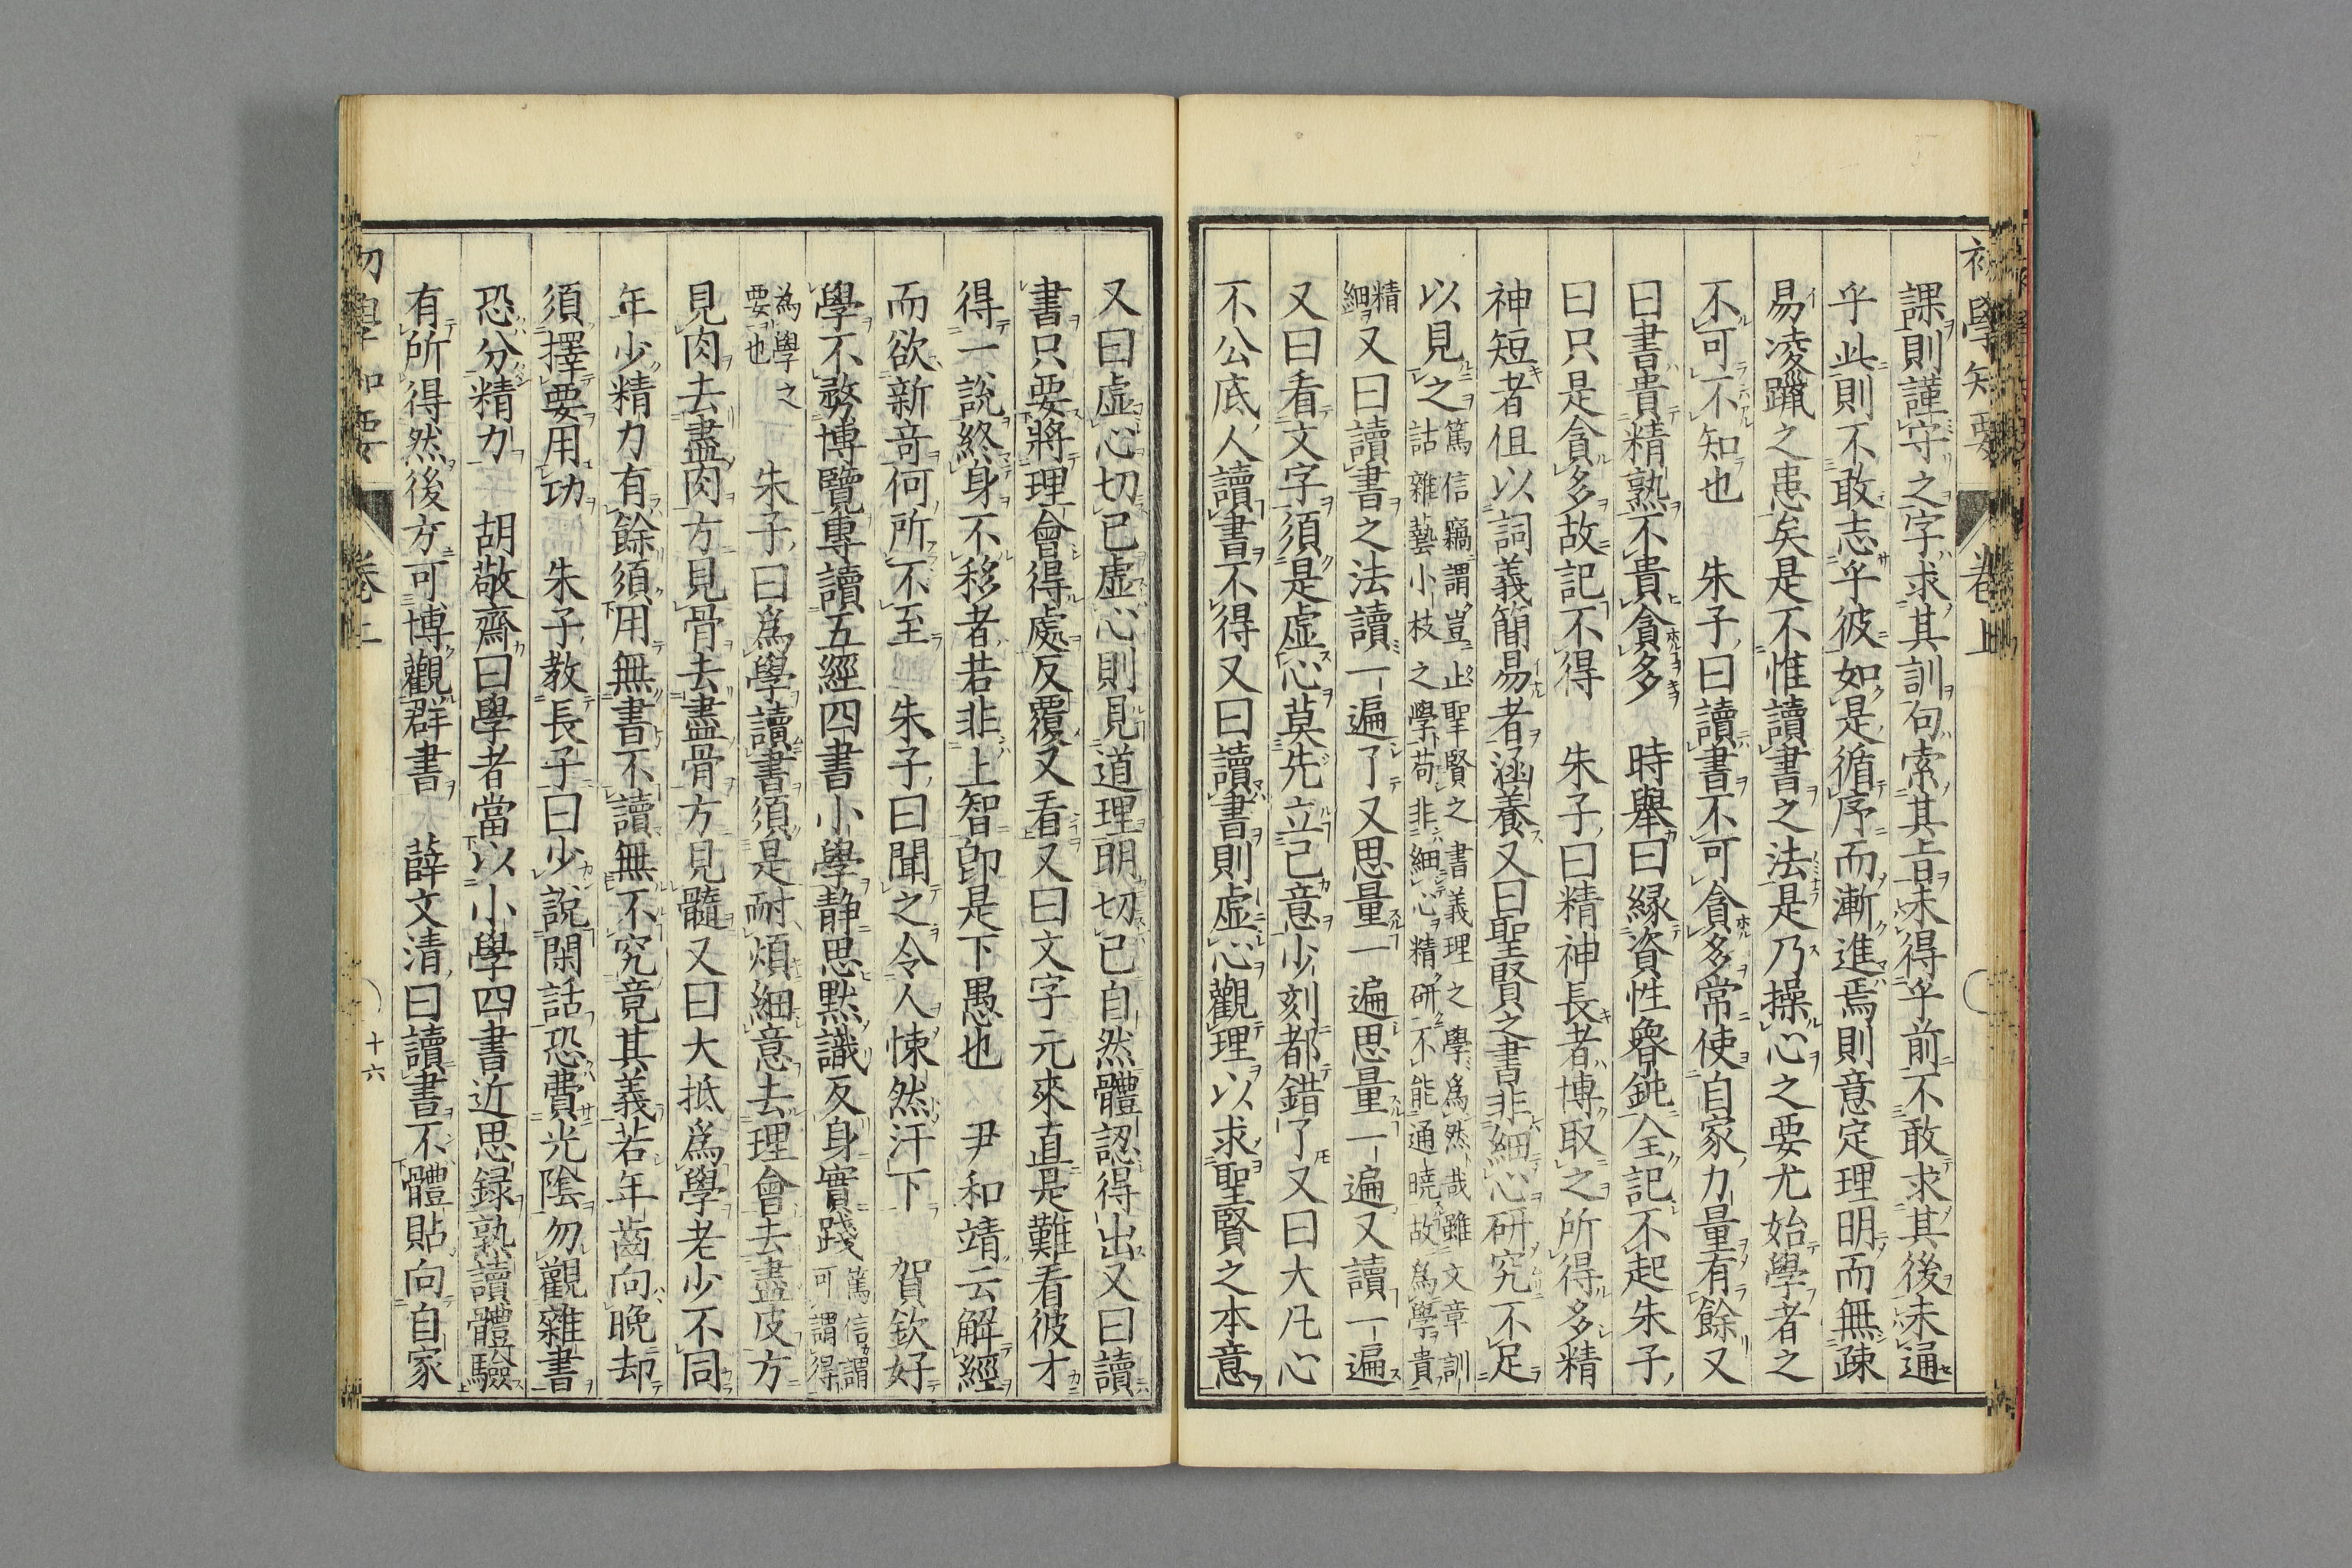 初學知要 卷上
課則謹守之字求其訓句索其旨未得乎前不敢求其後未通
乎此則不敢志乎彼如是循序而漸進焉則意定理明而無疎
易凌躐之患矣是不惟讀書之法是乃操心之要尤始學者之
不可不知也 朱子曰讀書不可貪多常使自家力量有餘又
曰書貴精熟不貴貪多 時舉曰縁資性魯鈍全記不起朱子
曰只是貪多故記不得 朱子曰精神長者博取之所得多精
神短者但以詞義簡易者涵養又曰聖賢之書非細心研究不足
以見之篤信竊謂豈止聖賢之書義理之學爲然哉雖文章訓
詁雜藝小枝之學苟非細心精研不能通曉故爲學貴
精細又曰讀書之法讀一遍了又思量一遍思量一遍又讀一遍
又曰看文字須是虚心莫先立己意少刻都錯了又曰大凡心
不公底人讀書不得又曰讀書則虚心觀理以求聖賢之本意
又曰虚心切己虚心則見道理明切己自然體認得出又曰讀
書只要將理會得處反覆又看又曰文字元來直是難看彼才
得一説終身不移者若非上智卽是下愚也 尹和靖云解經
而欲新竒何所不至 朱子曰聞之令人悚然汗下 賀欽好
學不務博覽專讀五經四書小學静思默識反身實踐篤信謂
可謂得
爲學之
要也 朱子曰爲學讀書須是耐煩細意去理會去盡皮方
見肉去盡肉方見骨去盡骨方見髓又曰大抵爲學老少不同
年少精力有餘須用無書不讀無不究竟其義若年齒向晩却
須擇要用功 朱子教長子曰少説閑話恐費光陰勿觀雜書
恐分精力 胡敬齋曰學者當以小學四書近思録熟讀體驗
有所得然後方可博觀群書 薛文清曰讀書不體貼向自家
初學知要 卷上 十六